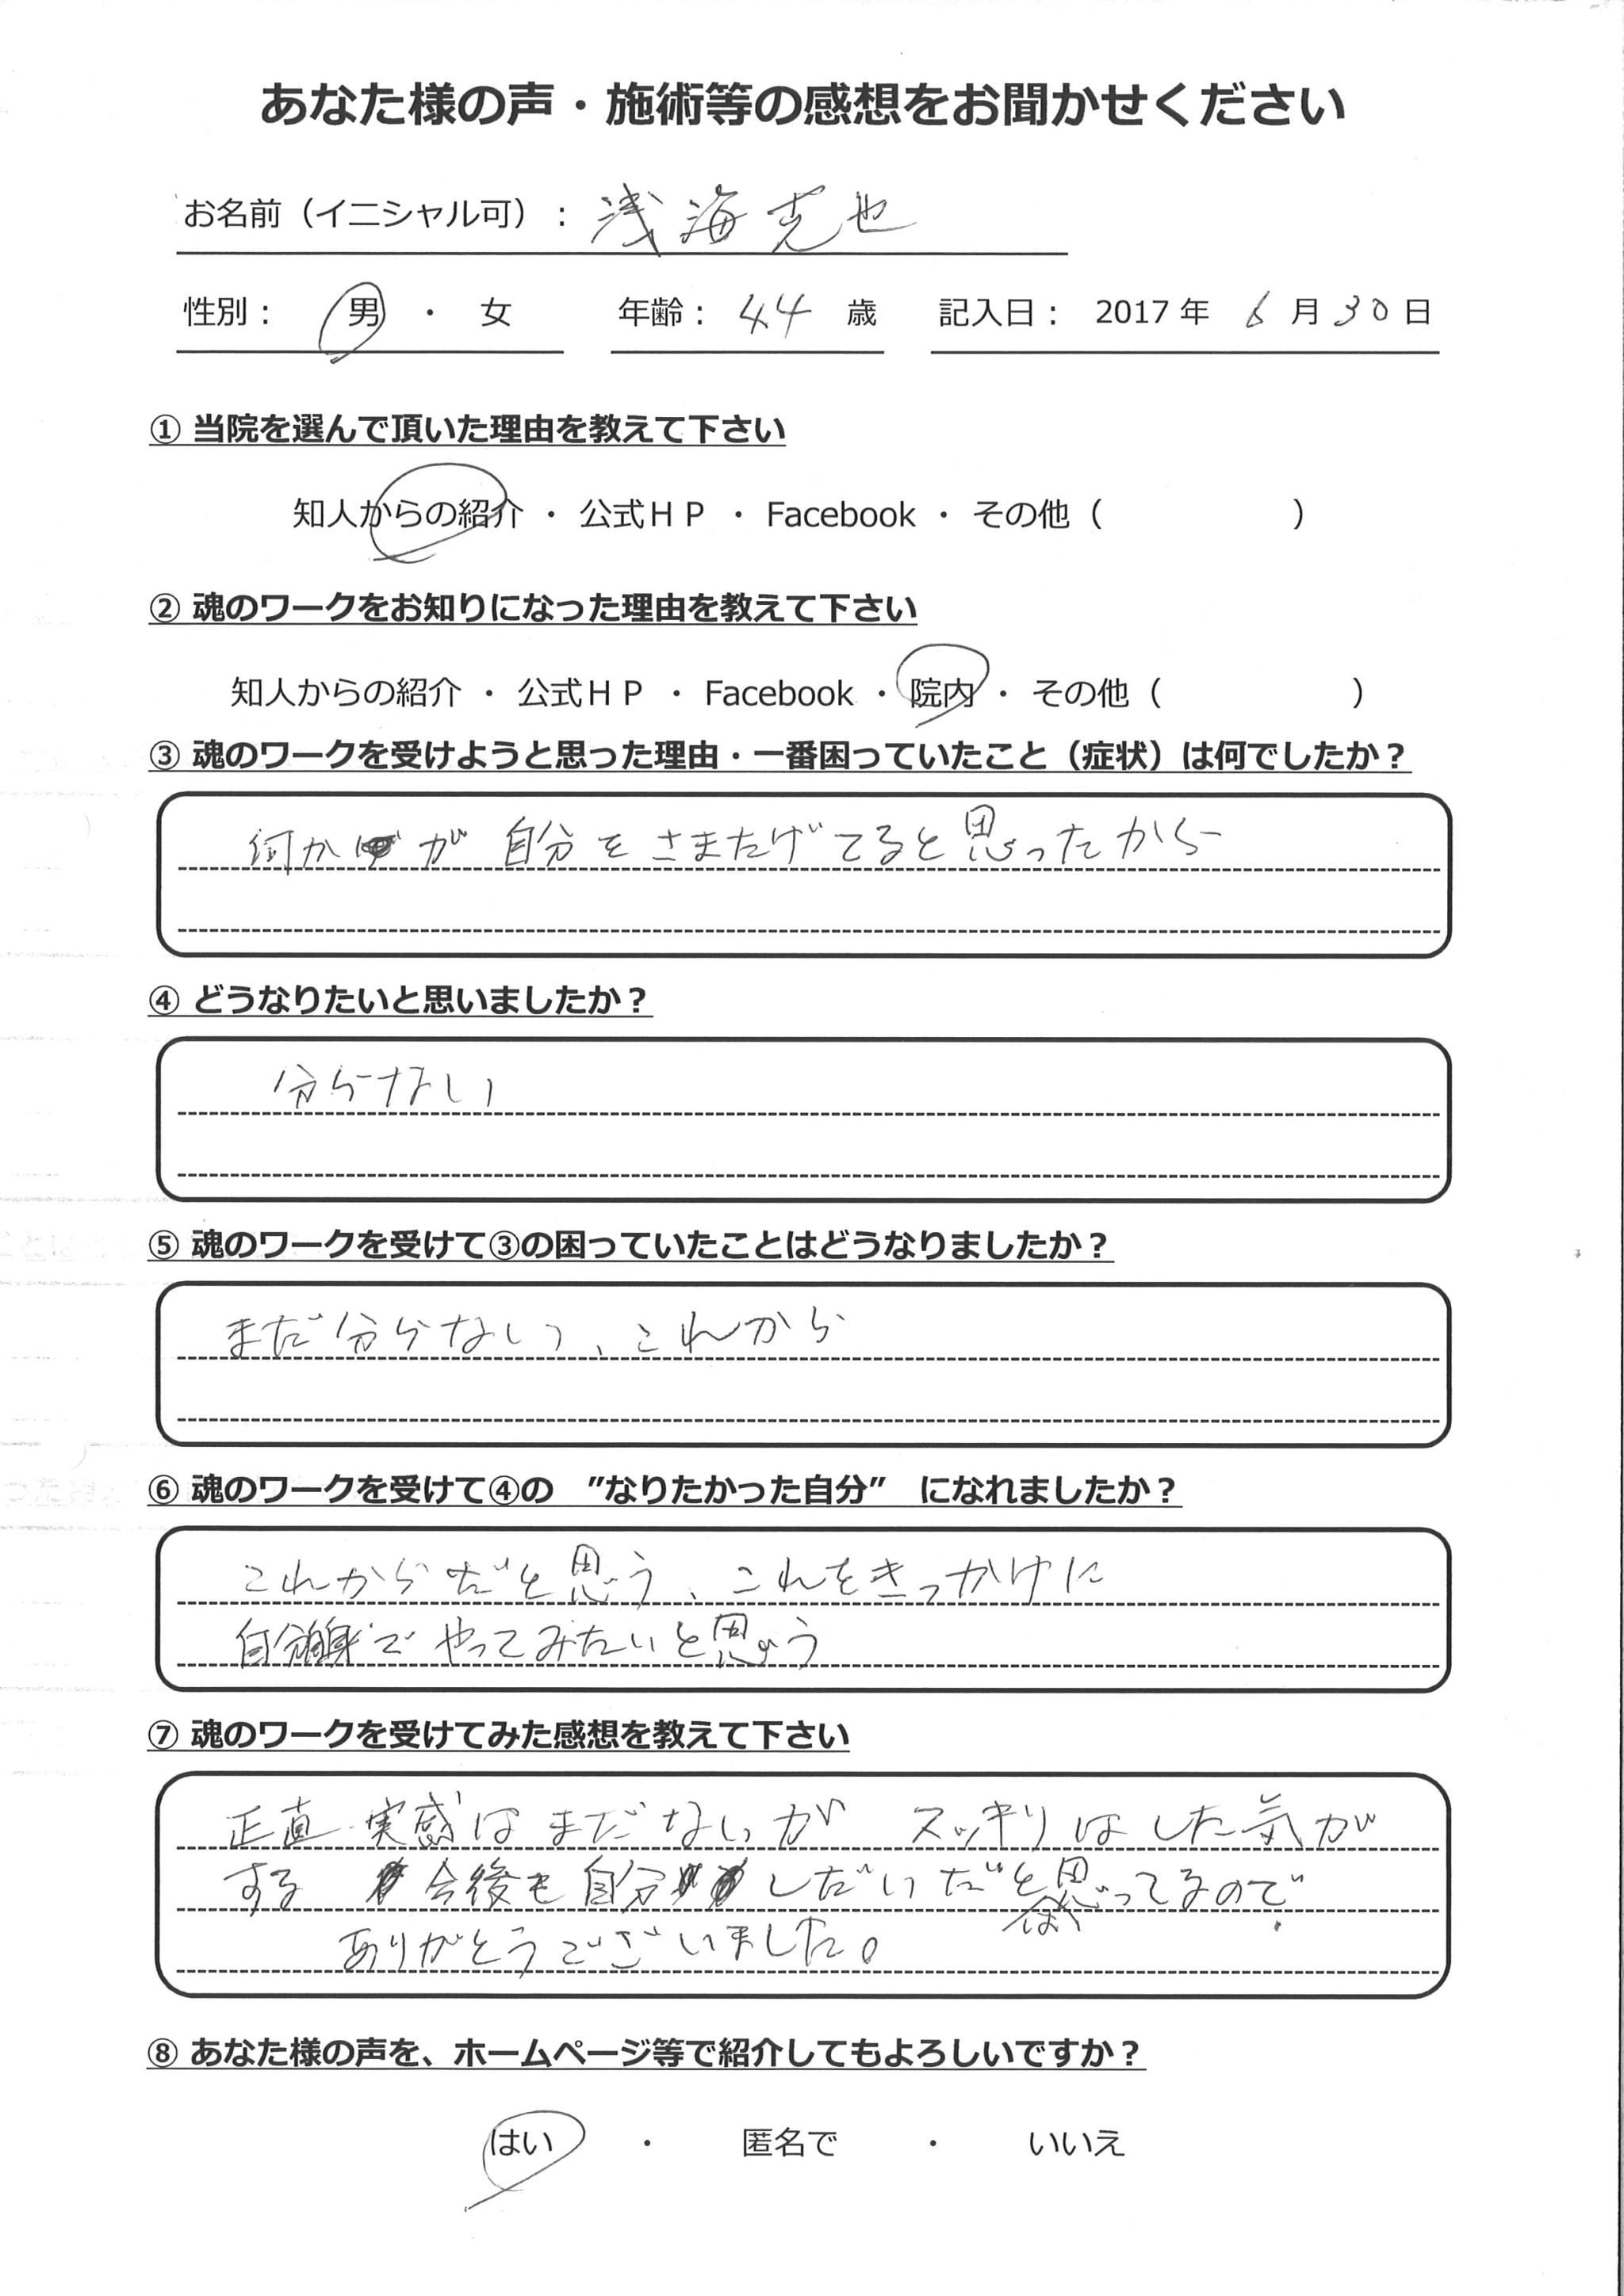 あなた様の声・施術等の感想をお聞かせください
お名前（イニシャル可）： 浅海克也
性別： 男 ・ 女 年齢： 44 歳 記入日： 2017 年 6 月 30 日
① 当院を選んで頂いた理由を教えて下さい
知人からの紹介 ・ 公式ＨＰ ・ Facebook ・ その他（ ）
② 魂のワークをお知りになった理由を教えて下さい
知人からの紹介 ・ 公式ＨＰ ・ Facebook ・ 院内 ・ その他（ ）
③ 魂のワークを受けようと思った理由・一番困っていたこと（症状）は何でしたか？
何かが 自分をさまたげてると思ったから
④ どうなりたいと思いましたか？
分らない
⑤ 魂のワークを受けて③の困っていたことはどうなりましたか？
まだ分らない、これから
⑥ 魂のワークを受けて④の ”なりたかった自分” になれましたか？
これからだと思う、これをきっかけに
自分自身でやってみたいと思う
⑦ 魂のワークを受けてみた感想を教えて下さい
正直 実感はまだないが スッキリはした気が
する 今後も自分しだいだと思ってるので
ありがとうございました。
⑧ あなた様の声を、ホームページ等で紹介してもよろしいですか？
はい ・ 匿名で ・ いいえ